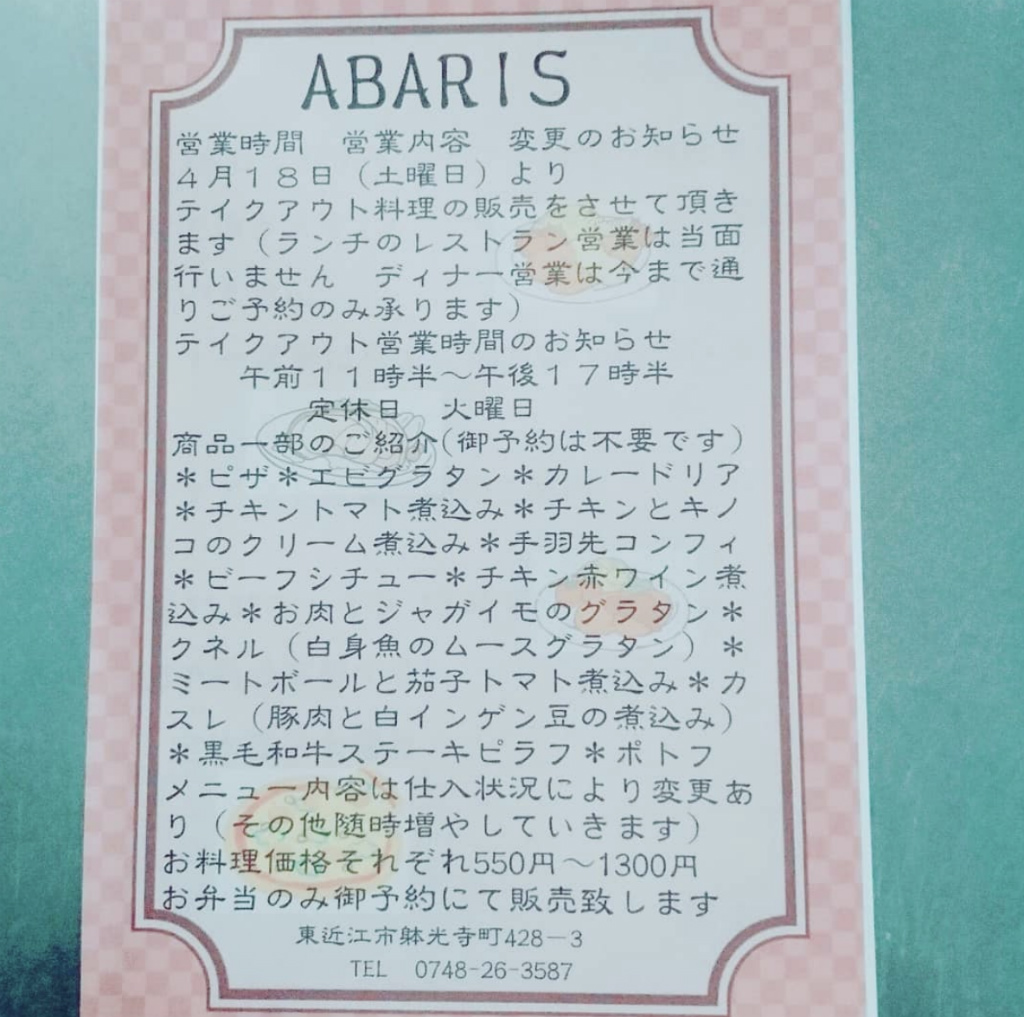 ABARIS
営業時間　営業内容　変更のお知らせ
４月１８日（土曜日）より
テイクアウト料理の販売をさせて頂き
ます（ランチのレストラン営業は当面
行いません　ディナー営業は今まで通
りご予約のみ承ります）
テイクアウト営業時間のお知らせ
午前１１時半～午後１７時半
定休日　火曜日
商品一部のご紹介(御予約は不要です)
＊ピザ＊エビグラタン＊カレードリア
＊チキントマト煮込み＊チキンとキノ
コのクリーム煮込み＊手羽先コンフィ
＊ビーフシチュー＊チキン赤ワイン煮
込み＊お肉とジャガイモのグラタン＊
クネル（白身魚のムースグラタン）＊
ミートボールと茄子トマト煮込み＊カ
スレ（豚肉と白インゲン豆の煮込み）
＊黒毛和牛ステーキピラフ＊ポトフ
メニュー内容は仕入状況により変更あ
り（その他随時増やしていきます）
お料理価格それぞれ550円～1300円
お弁当のみ御予約にて販売致します
東近江市躰光寺町428－3
TEL　0748-26-3587